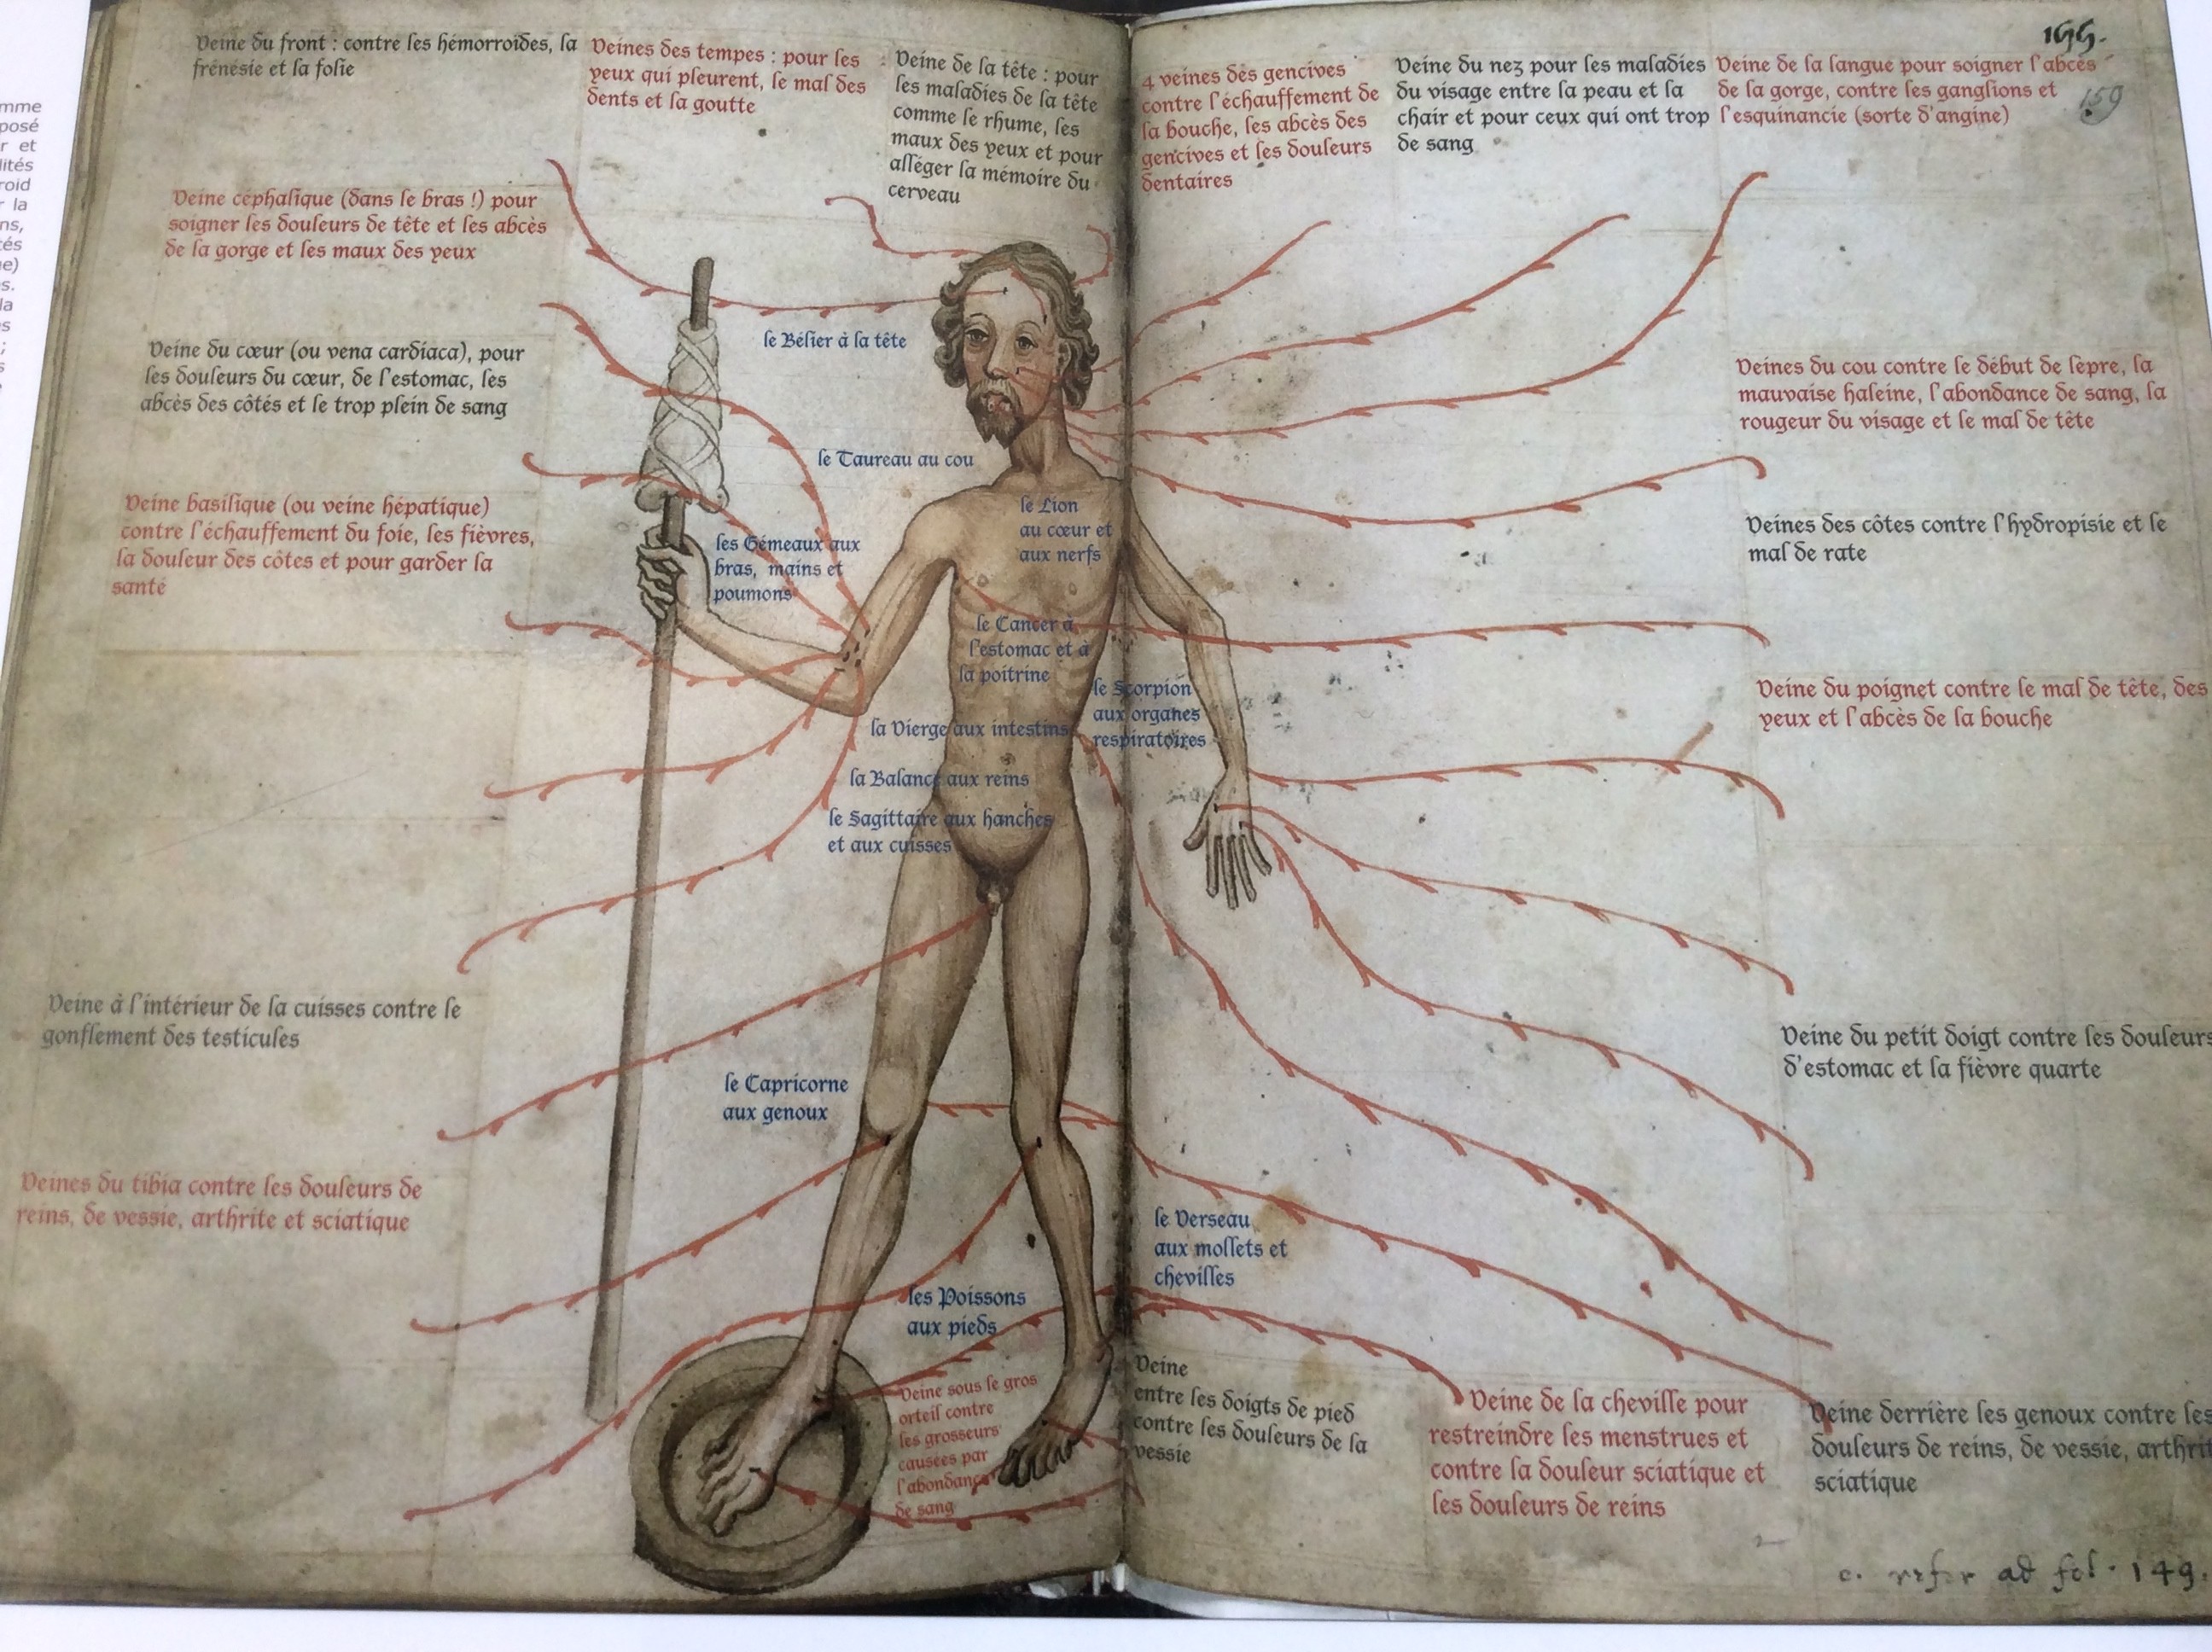 mme
posé
r et
lités
roid
r la
ns,
tés
ue)
s.
la
s
;
s
e
Veine du front : contre les hémorroïdes, la
frénésie et la folie
Veines des tempes : pour les
yeux qui pleurent, le mal des
dents et la goutte
Veine de la tête : pour
les maladies de la tête
comme le rhume, les
maux des yeux et pour
alléger la mémoire du
cerveau
4 veines des gencives
contre l'échauffement de
la bouche, les abcès des
gencives et les douleurs
dentaires
Veine du nez pour les maladies
du visage entre la peau et la
chair et pour ceux qui ont trop
de sang
Veine de la langue pour soigner l'abcès
de la gorge, contre les ganglions et
l'esquinancie (sorte d'angine)
159
Veine céphalique (dans le bras !) pour
soigner les douleurs de tête et les abcès
de la gorge et les maux des yeux
Veine du cœur (ou vena cardiaca), pour
les douleurs du cœur, de l'estomac, les
abcès des côtés et le trop plein de sang
Veine basilique (ou veine hépatique)
contre l'échauffement du foie, les fièvres,
la douleur des côtes et pour garder la
santé
Veine à l'intérieur de la cuisses contre le
gonflement des testicules
Veines du tibia contre les douleurs de
reins, de vessie, arthrite et sciatique
le Bélier à la tête
le Taureau au cou
le Lion
au cœur et
aux nerfs
les Gémeaux aux
bras, mains et
poumons
le Cancer à
l'estomac et à
la poitrine
le Scorpion
aux organes
respiratoires
la Vierge aux intestins
la Balance aux reins
le Sagittaire aux hanches
et aux cuisses
le Capricorne
aux genoux
le Verseau
aux mollets et
chevilles
les Poissons
aux pieds
Veines du cou contre le début de lèpre, la
mauvaise haleine, l'abondance de sang, la
rougeur du visage et le mal de tête
Veines des côtes contre l'hydropisie et le
mal de rate
Veine du poignet contre le mal de tête, des
yeux et l'abcès de la bouche
Veine du petit doigt contre les douleurs
d'estomac et la fièvre quarte
Veine sous le gros
orteil contre
les grosseurs
causées par
l'abondance
de sang
Veine
entre les doigts de pied
contre les douleurs de la
vessie
Veine de la cheville pour
restreindre les menstrues et
contre la douleur sciatique et
les douleurs de reins
Veine derrière les genoux contre les
douleurs de reins, de vessie, arthrit
sciatique
ad fol. 149.